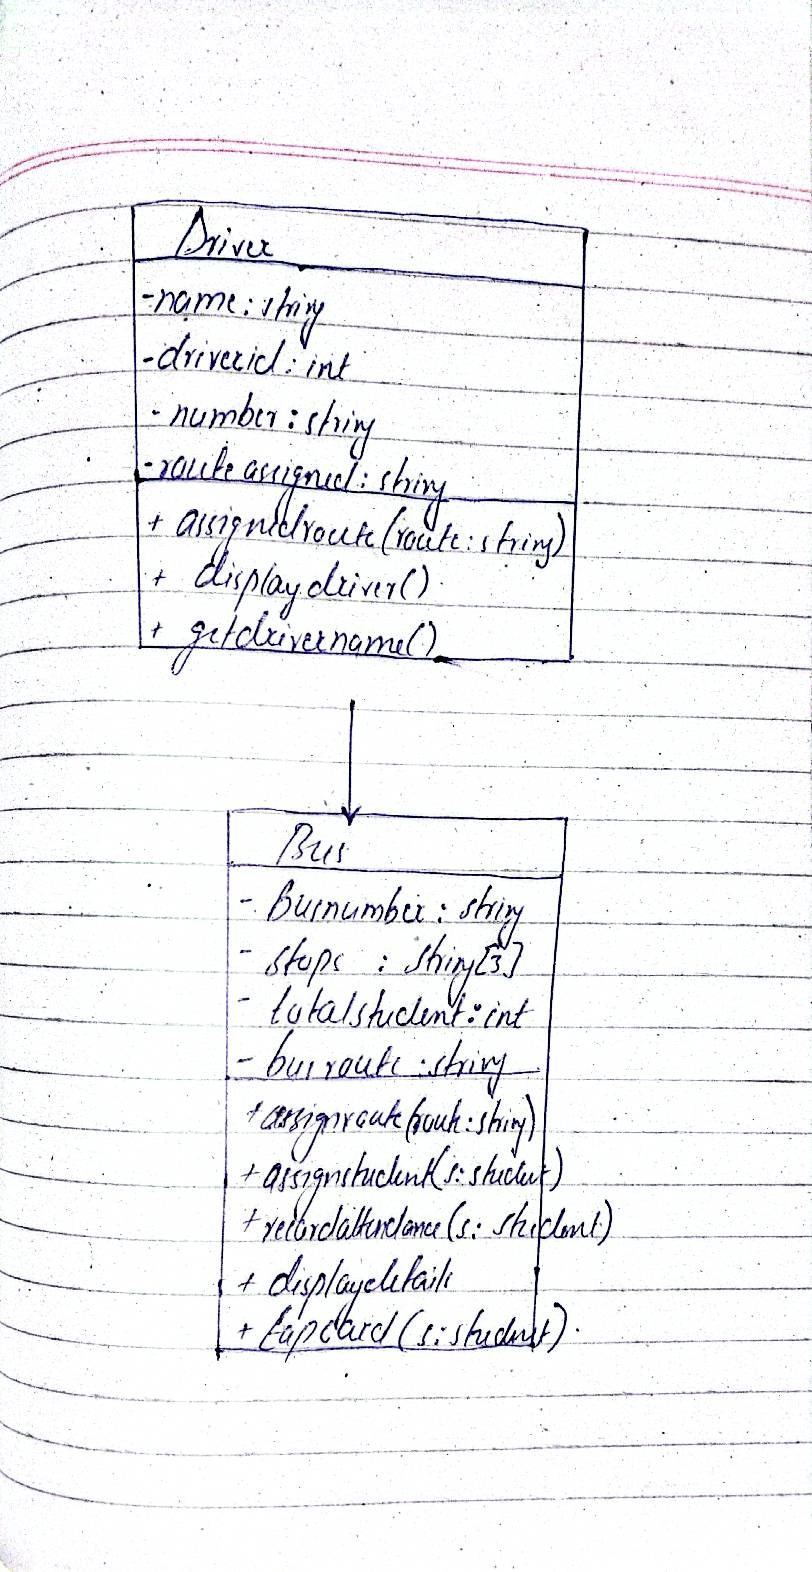 Driver
-name: string
-driverid: int
- number: string
-route assigned: string
+ assignedroute(route: string)
+ displaydriver()
+ getdrivername()
Bus
- Busnumber: string
- stops : string[3]
- totalstudent: int
- busroute: string
+assignroute(route: string)
+assignstudent(s: student)
+recordattendance(s: student)
+ displaydetails
+ tapcard(s: student).